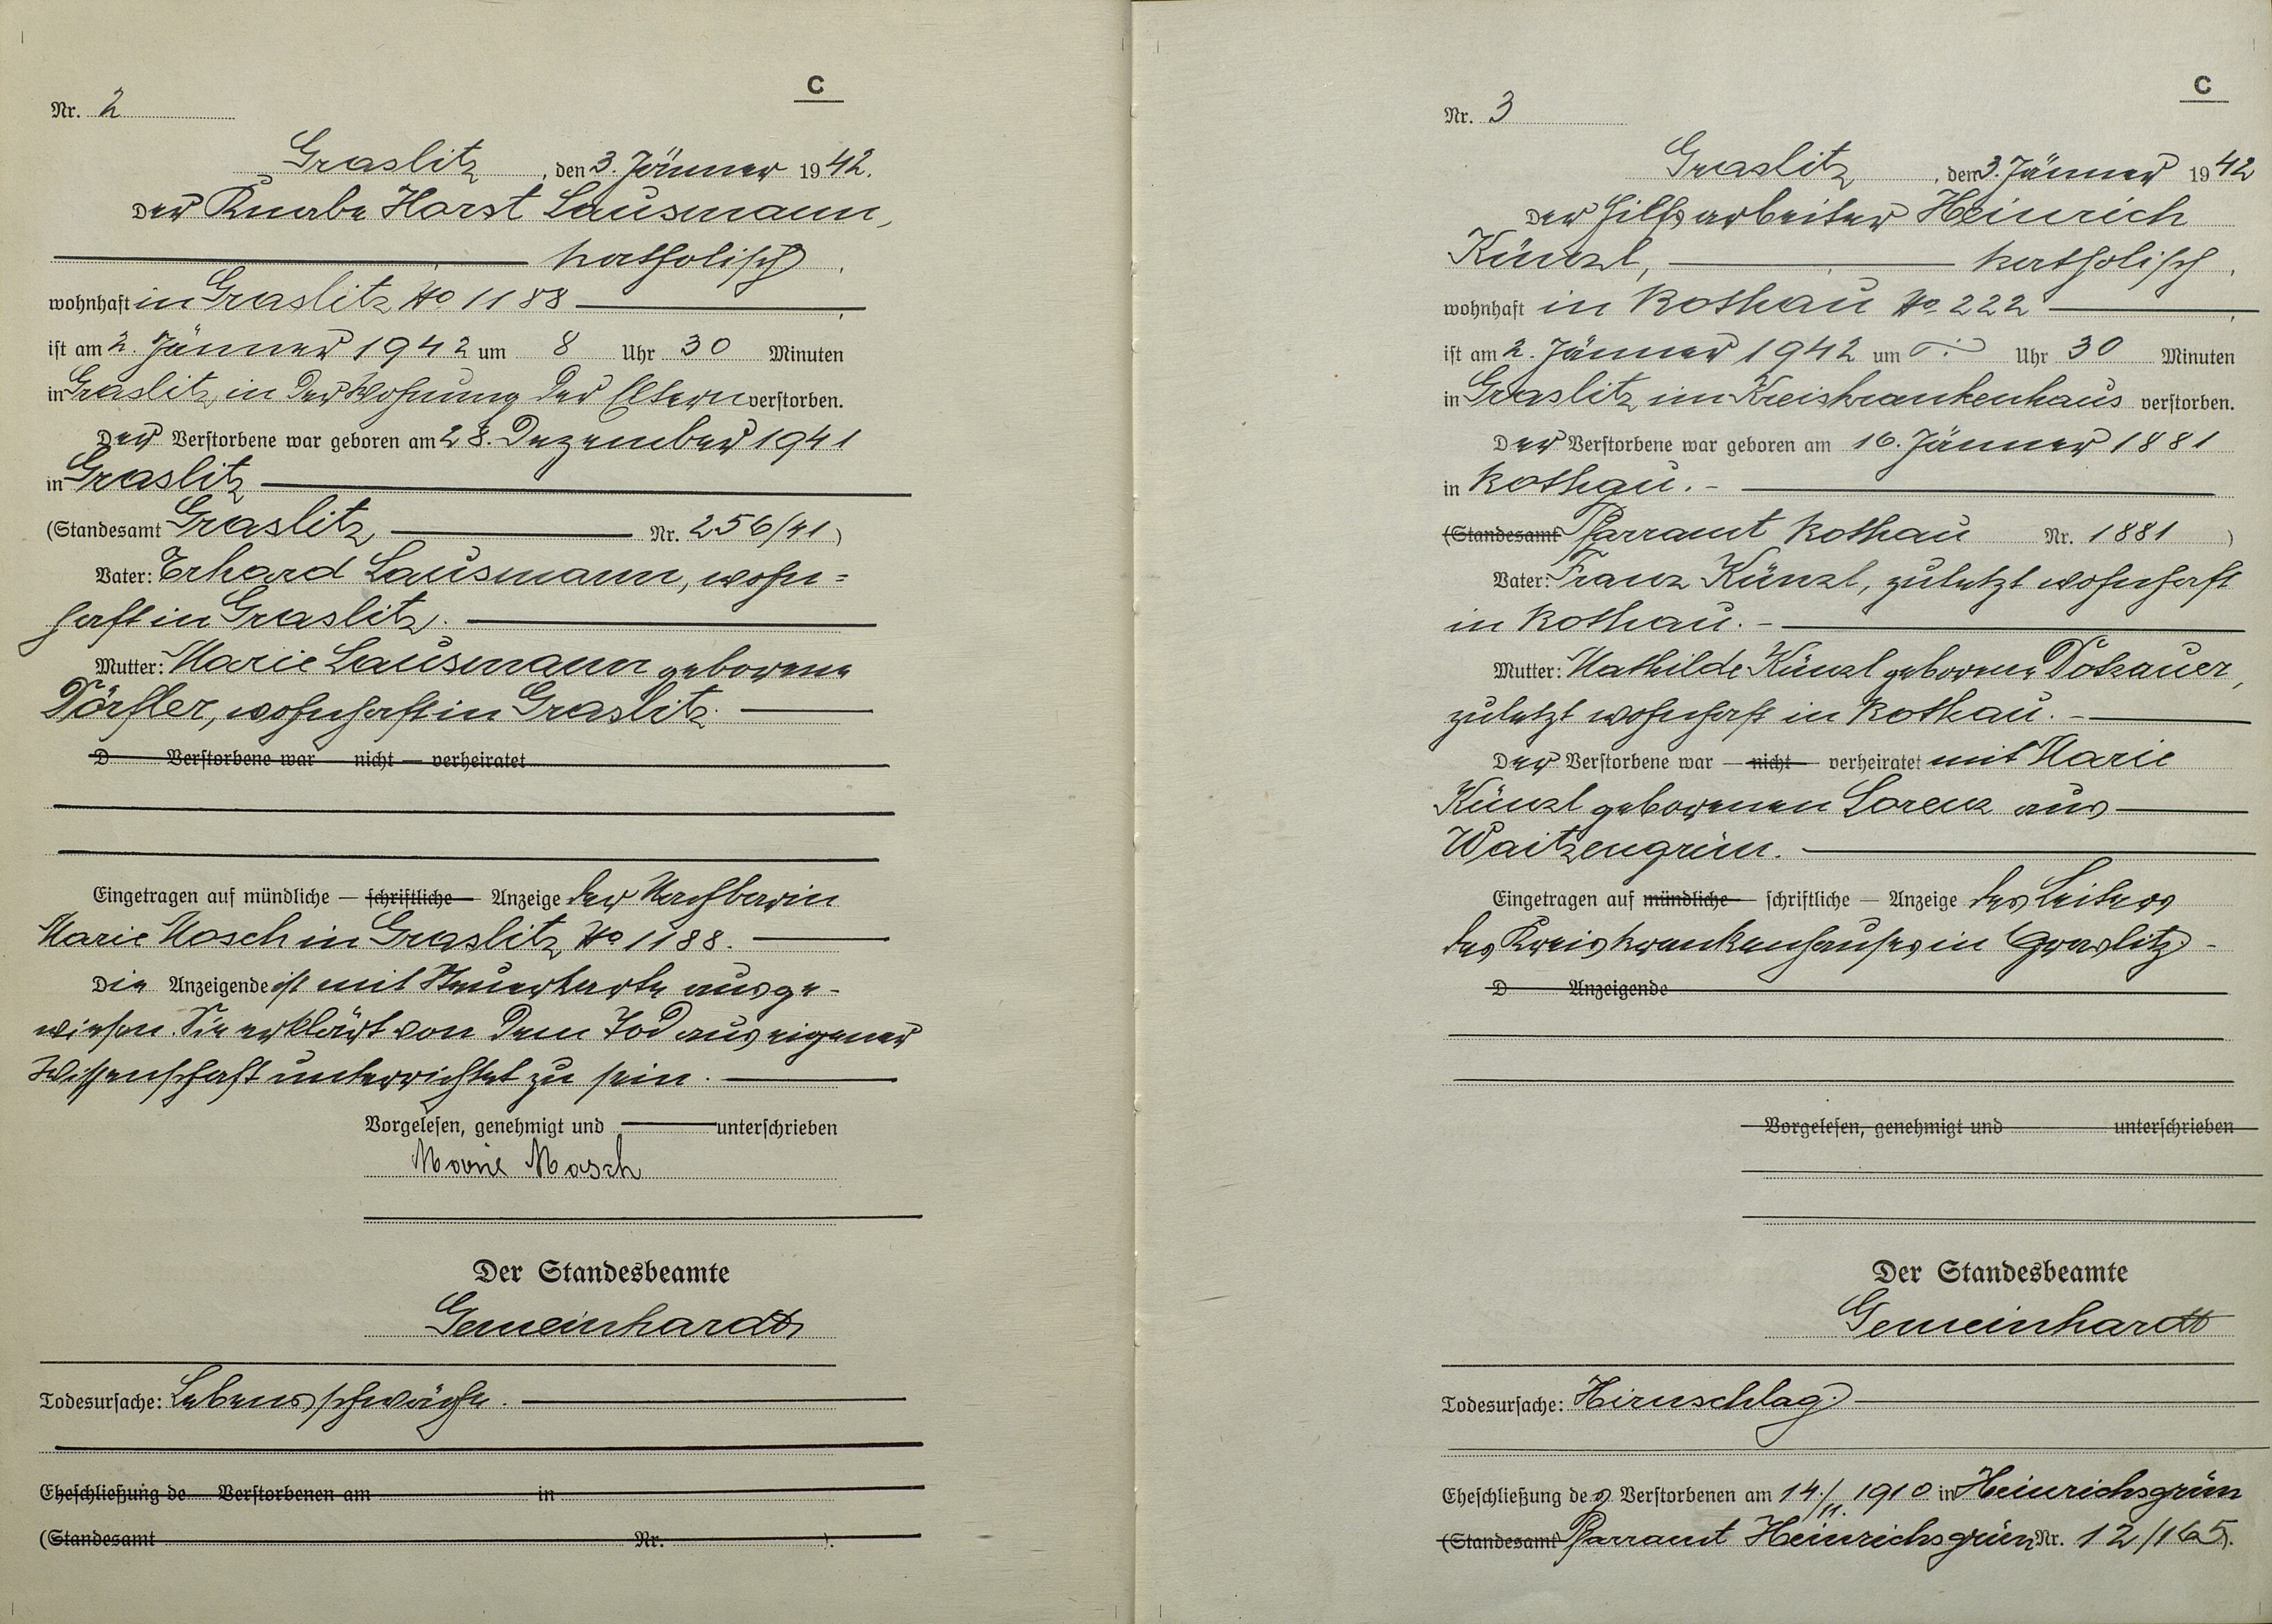 C
Nr. 2
Graslitz, den 3. Jänner 1942.
Der Knabe Horst Lausmann,
katholisch,
wohnhaft in Graslitz No 1188
ist am 2. Jänner 1942 um 8 Uhr 30 Minuten
in Graslitz, in der Wohnung der Eltern verstorben.
Der Verstorbene war geboren am 28. Dezember 1941
in Graslitz
(Standesamt Graslitz Nr. 256/41)
Vater: Erhard Lausmann, wohn=
haft in Graslitz.
Mutter: Marie Lausmann geborene
Dörfler, wohnhaft in Graslitz.
D Verstorbene war — nicht — verheiratet
Eingetragen auf mündliche — schriftliche — Anzeige der Nachbarin
Marie Mosch in Graslitz No 1188.
Die Anzeigende ist mit Steuerkarte ausge-
wiesen. Sie erklärt von dem Tod aus eigener
Wissenschaft unterrichtet zu sein.
Vorgelesen, genehmigt und unterschrieben
Marie Mosch
Der Standesbeamte
Gemeinhardt
Todesursache: Lebensschwäche.
Eheschließung de Verstorbenen am in
(Standesamt Nr. ).
C
Nr. 3
Graslitz, den 3. Jänner 1942
Der Hilfsarbeiter Heinrich
Künzl, katholisch,
wohnhaft in Rothau No 222
ist am 2. Jänner 1942 um Uhr 30 Minuten
in Graslitz im Kreiskrankenhaus verstorben.
Der Verstorbene war geboren am 16. Jänner 1881
in Rothau.-
(Standesamt Pfarramt Rothau Nr. 1881)
Vater: Franz Künzl, zuletzt wohnhaft
in Rothau.-
Mutter: Mathilde Künzl geborene Dotzauer,
zuletzt wohnhaft in Rothau.-
Der Verstorbene war — nicht — verheiratet mit Marie
Künzl geborenen Lorenz aus
Waitzengrün.
Eingetragen auf mündliche — schriftliche — Anzeige des Leiters
des Kreiskrankenhauses in Graslitz -
D Anzeigende
Vorgelesen, genehmigt und unterschrieben
Der Standesbeamte
Gemeinhardt
Todesursache: Hirnschlag.
Eheschließung des Verstorbenen am 14./11. 1910 in Heinrichsgrün
(Standesamt Pfarramt Heinrichsgrün Nr. 12/165).